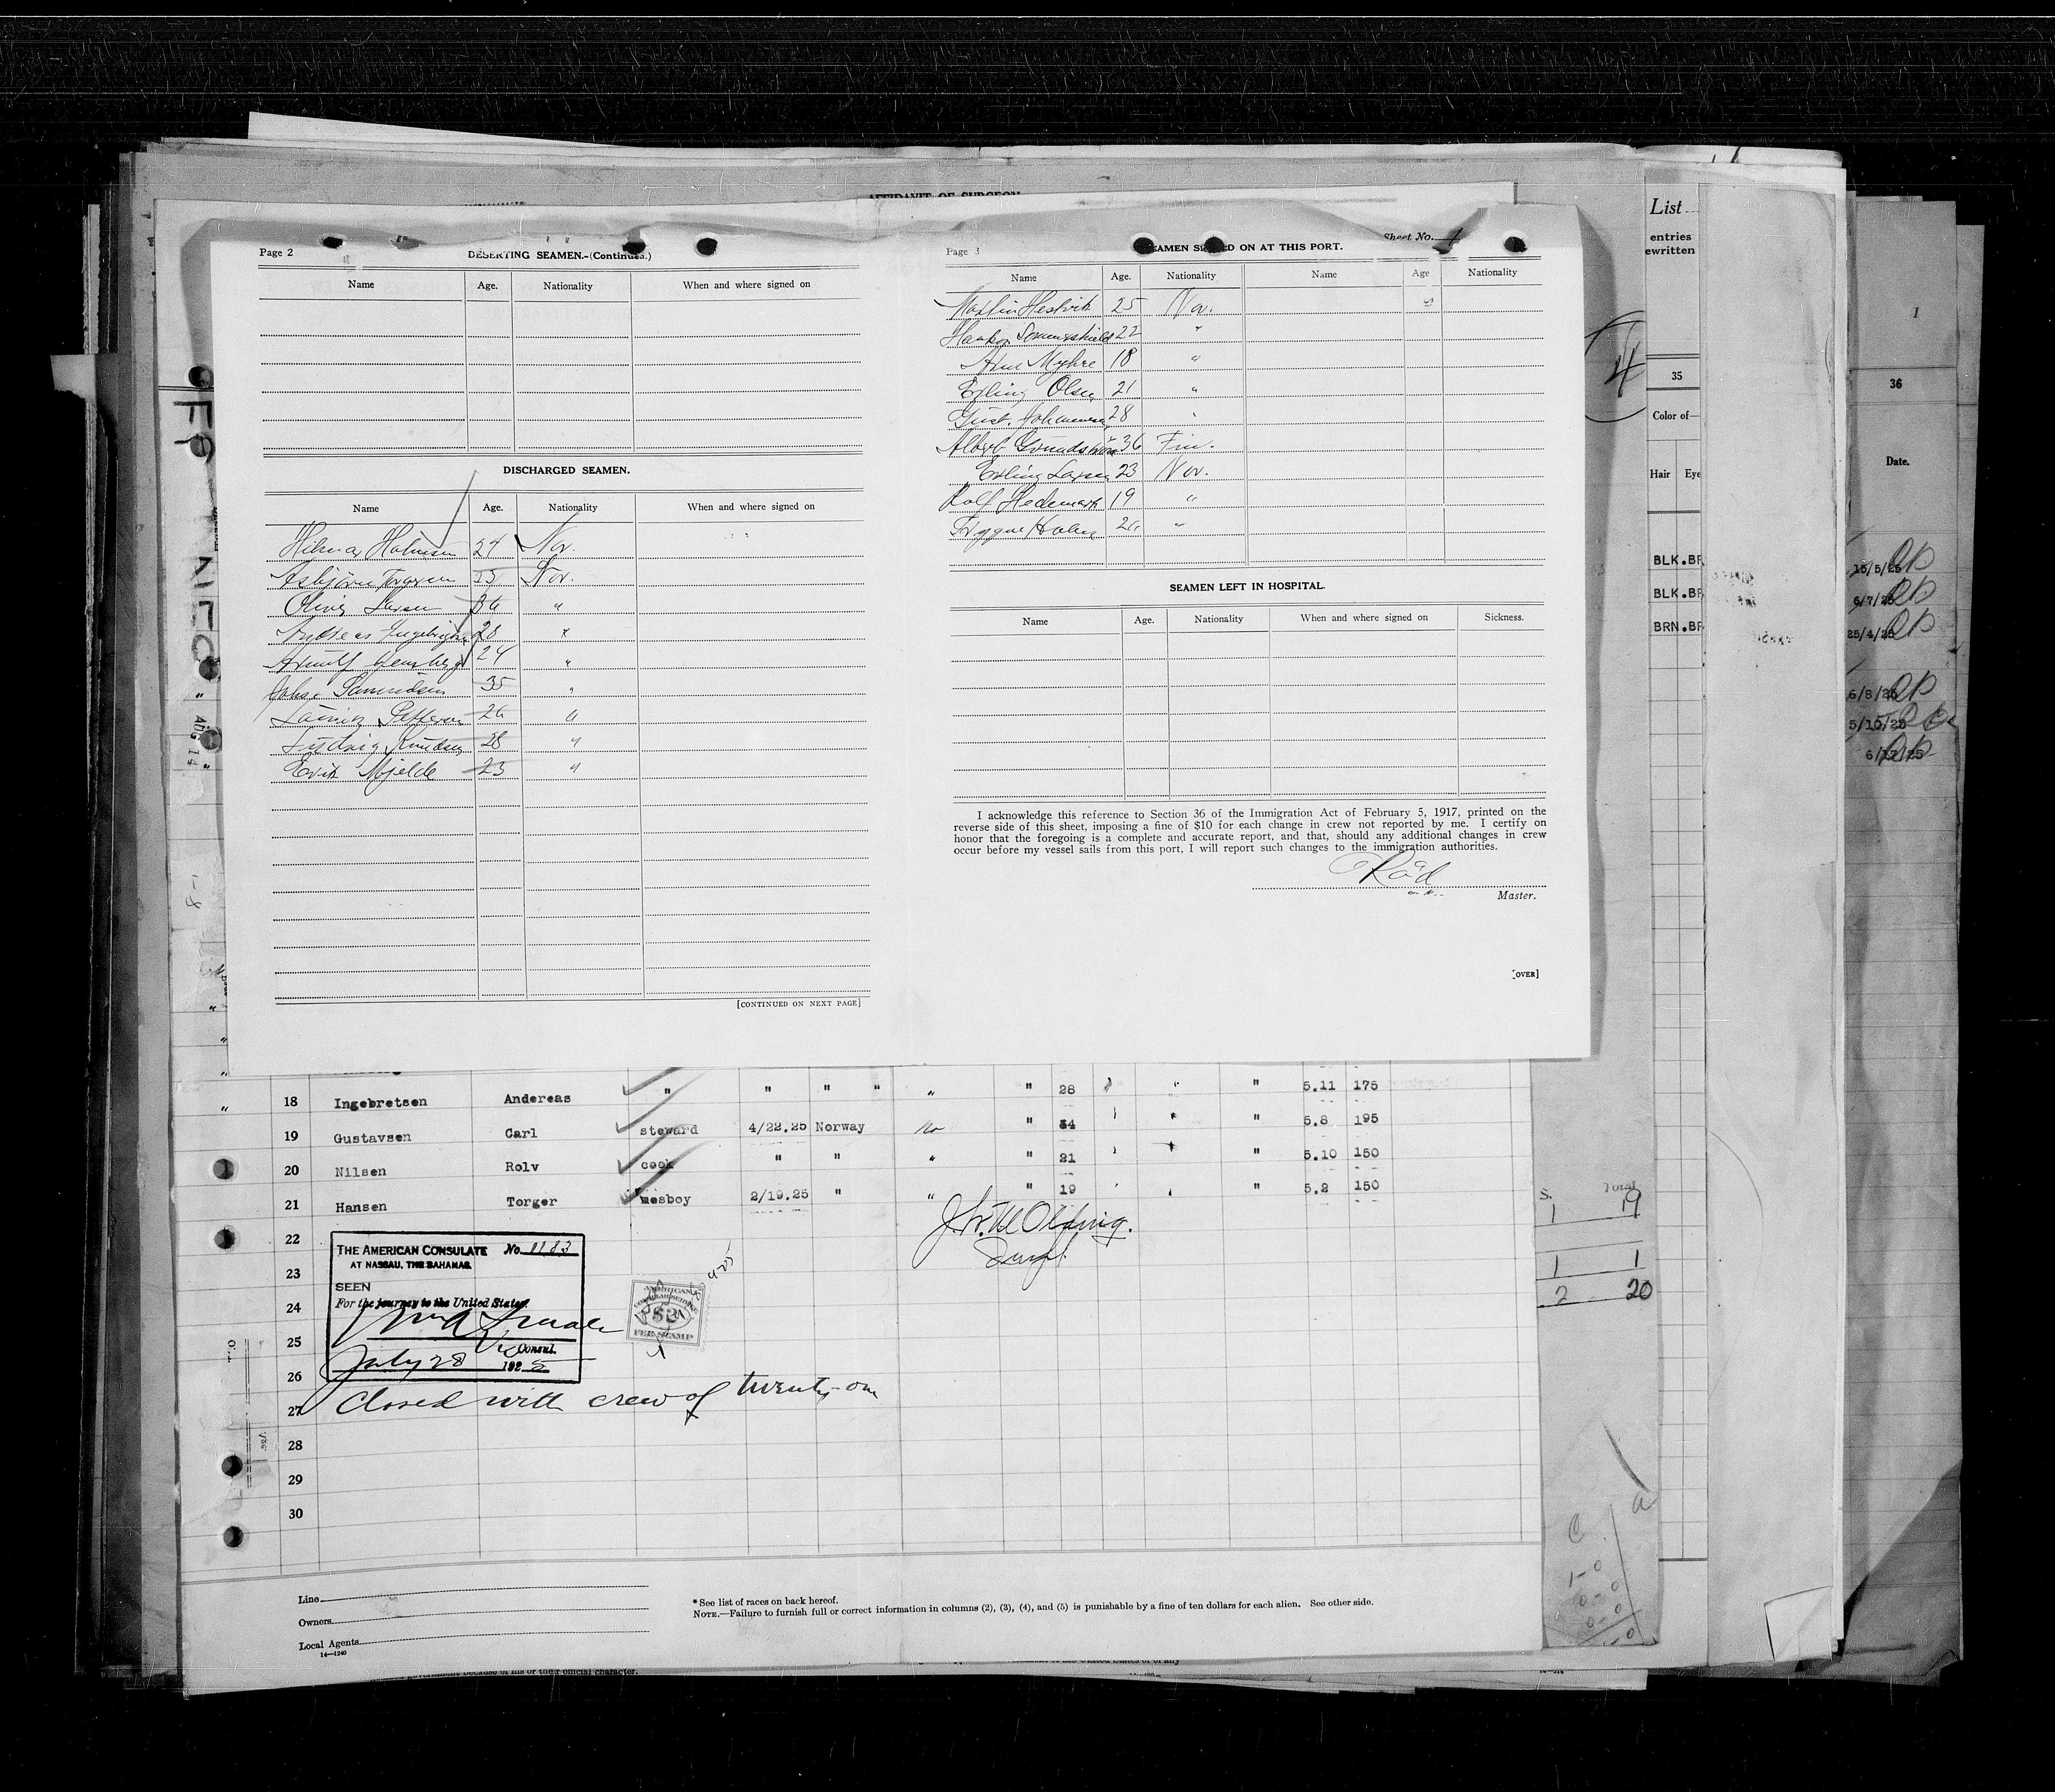 AFFIDAVIT OF SURGEON
Page 2
DESERTING SEAMEN.-(Continued.)
Name Age. Nationality When and where signed on
DISCHARGED SEAMEN.
Name Age. Nationality When and where signed on
Hilmar 24 Nor.
Asbjörn 25 Nor.
Larsen 36 "
28 "
24 "
35 "
26 "
Ludvig Knudsen 28 "
Erik Mjelde 23 "
[CONTINUED ON NEXT PAGE]
Sheet No. 1
Page 3
SEAMEN SIGNED ON AT THIS PORT.
Name Age. Nationality Name Age Nationality
Martin Hestvik 25 Nor.
Haakon 22 "
Myhre 18 "
Erling Olsen 21 "
Gust. Johannesen 28 "
Albert Grundström 36 Fin.
Erling Larsen 23 Nor.
Rolf Hedemark 19 "
Trygve Holm "
SEAMEN LEFT IN HOSPITAL.
Name Age. Nationality When and where signed on Sickness.
I acknowledge this reference to Section 36 of the Immigration Act of February 5, 1917, printed on the
reverse side of this sheet, imposing a fine of $10 for each change in crew not reported by me. I certify on
honor that the foregoing is a complete and accurate report, and that, should any additional changes in crew
occur before my vessel sails from this port, I will report such changes to the immigration authorities.
Råd
Master.
[OVER]
List
entries
ewritten
35
Color of—
Hair Eye
BLK.BR
BLK.BR
BRN.BR
I
36
Date.
15/5/25
6/7/25
25/4/25
6/8/25
5/10/25
AUG 14
18 Ingebretsen Andereas " " " " " " 28 " " 5.11 175
19 Gustavsen Carl steward 4/22.25 Norway no " 34 " 5.8 195
20 Nilsen Rolv cook " " " " 21 " 5.10 150
21 Hansen Torger mesboy 2/19.25 " " " 19 " 5.2 150
22
23
24
25
26
27
28
29
30
THE AMERICAN CONSULATE No. 1183
AT NASSAU, THE BAHAMAS.
SEEN
For the journey to the United States.
Consul.
July 28 1925
AMERICAN
CONSULAR SERVICE
$2
FEE STAMP
Closed with crew of twenty-one
Total
1 19
1 1
2 20
Line
Owners
Local Agents
14—1240
*See list of races on back hereof.
NOTE.—Failure to furnish full or correct information in columns (2), (3), (4), and (5) is punishable by a fine of ten dollars for each alien. See other side.
government because of his or their official character.